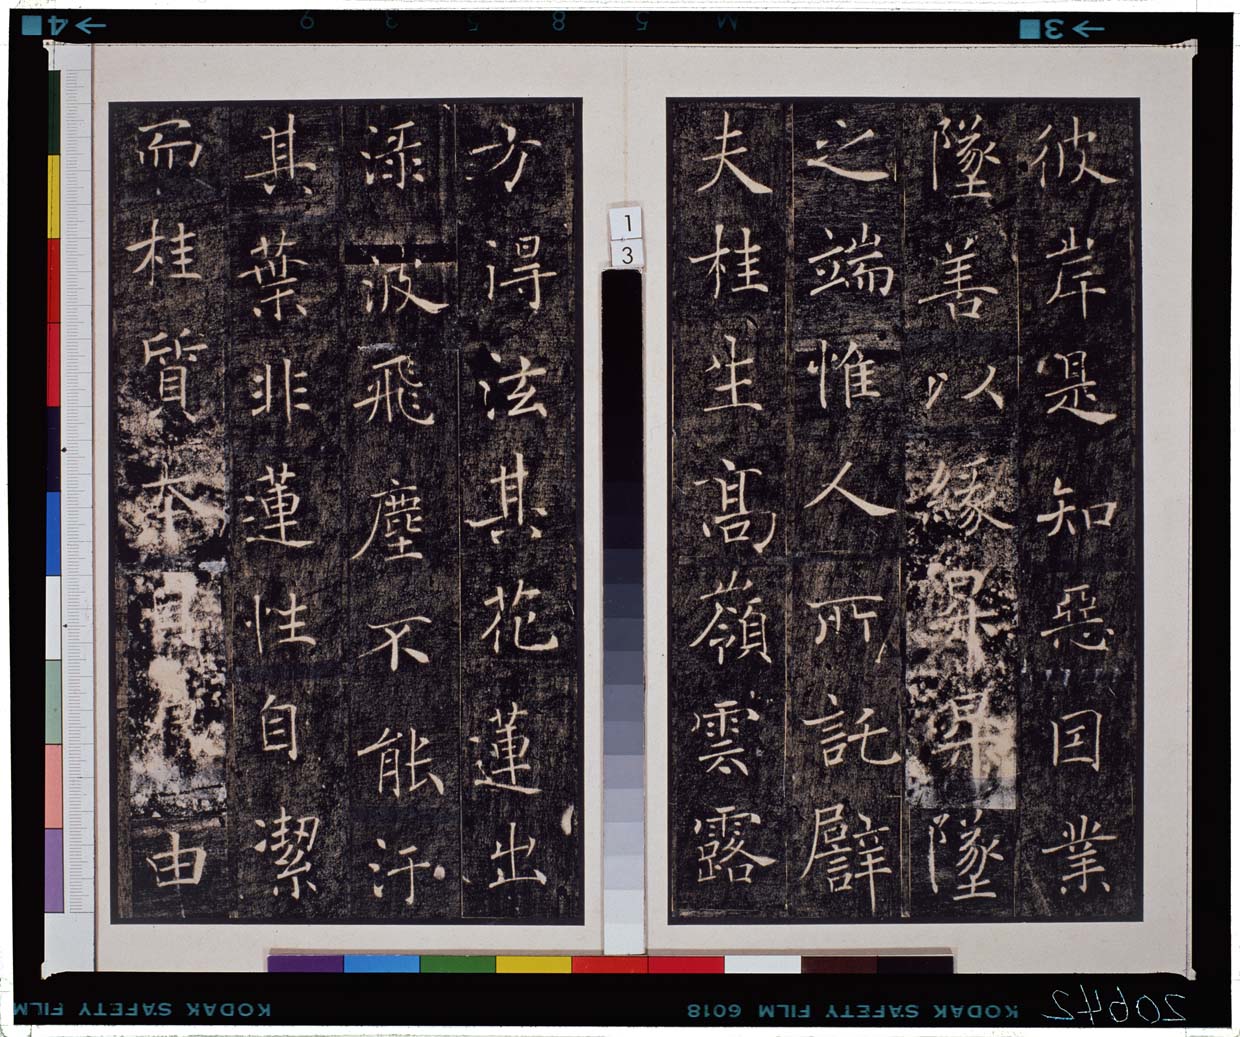 彼岸是知惡因業
墜善以緣昇昇墜
之端惟人所託譬
夫桂生高嶺雲露
方得泫其花蓮出
淥波飛塵不能汙
其葉非蓮性自潔
而桂質本由
1
3
4
3
KODAK SAFETY FILM 6018
KODAK SAFETY FILM
20642